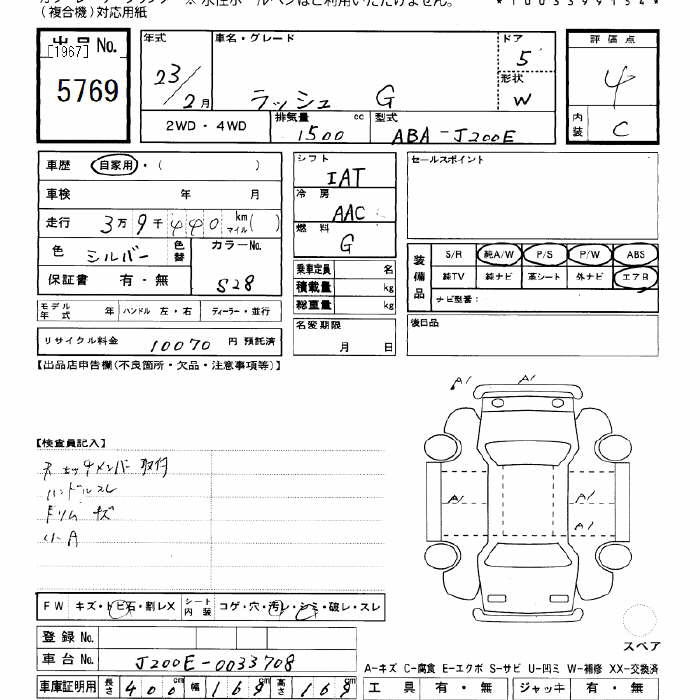 (複合機)対応用紙
出品No.
[1967]
5769
年式
23/2月
車名・グレード
ラッシュ G
ドア
5
形状
W
評価点
4
内装
C
2WD・4WD
排気量 cc
1500
型式
ABA-J200E
車歴 自家用・( )
車検 年 月
走行 3万9千440 km マイル( )
色 シルバー 色替
カラーNo.
S28
保証書 有・無
モデル年式 年 ハンドル 左・右 ディーラー・並行
リサイクル料金 10070 円 預託済
シフト
IAT
冷房
AAC
燃料
G
乗車定員 名
積載量 kg
総重量 kg
名変期限
月 日
セールスポイント
装備品
S/R 純A/W P/S P/W ABS
純TV 純ナビ 革シート 外ナビ エアB
ナビ型番:
後日品
【出品店申告欄(不良箇所・欠品・注意事項等)】
【検査員記入】
取付
ハンドルスレ
A1 A1
A1 A1
A1
FW キズ・トビ石・割レX
シート内装 コゲ・穴・汚レ・シミ・破レ・スレ
登録No.
車台No. J200E-0033708
車庫証明用 長さ 400cm 幅 169cm 高さ 169cm
スペア
A-キズ C-腐食 E-エクボ S-サビ U-凹ミ W-補修 XX-交換済
工具 有・無 ジャッキ 有・無